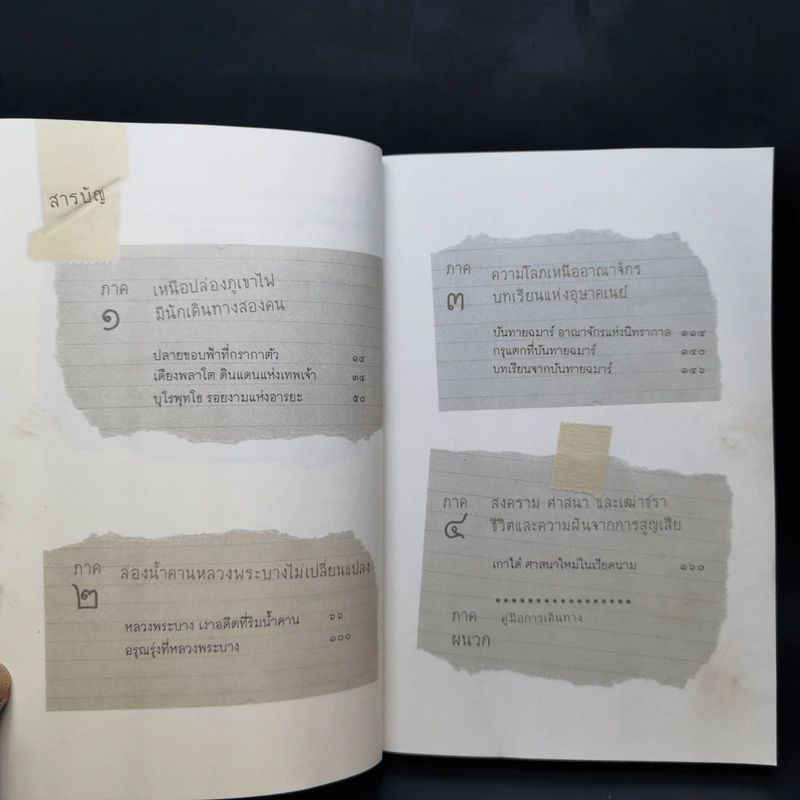 สารบัญ
ภาค
๑
เหนือปล่องภูเขาไฟ
มีนักเดินทางสองคน
ปลายขอบฟ้าที่กรากาตัว ๑๔
เดียงพลาโต ดินแดนแห่งเทพเจ้า ๓๔
บุโรพุทโธ รอยงามแห่งอารยะ ๕๐
ภาค
๒
ล่องน้ำคานหลวงพระบางไม่เปลี่ยนแปลง
หลวงพระบาง เงาอดีตที่ริมน้ำคาน ๖๖
อรุณรุ่งที่หลวงพระบาง ๑๐๐
ภาค
๓
ความโลภเหนืออาณาจักร
บทเรียนแห่งอุษาคเนย์
บันทายฉมาร์ อาณาจักรแห่งนิทรากาล ๑๑๔
กรุแตกที่บันทายฉมาร์ ๑๔๐
บทเรียนจากบันทายฉมาร์ ๑๔๖
ภาค
๔
สงคราม ศาสนา และเฒ่าชรา
ชีวิตและความฝันจากการสูญเสีย
เกาได๋ ศาสนาใหม่ในเวียดนาม ๑๖๐
ภาค
ผนวก
คู่มือการเดินทาง